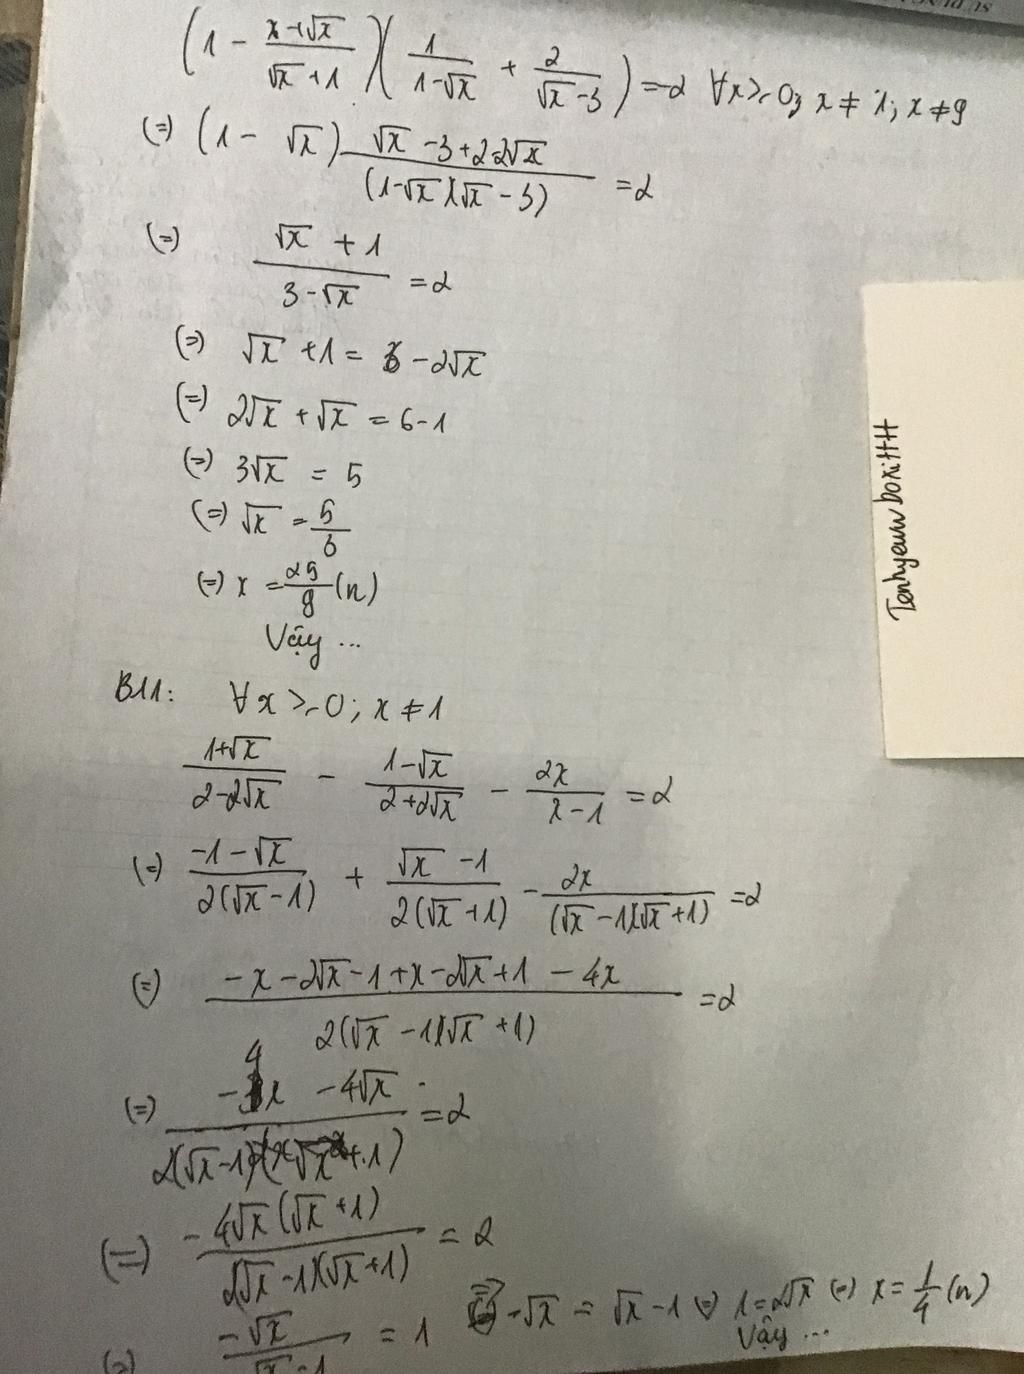 (1 - (x+√x)/(√x+1))(1/(1-√x) + 2/(√x-3)) = 2 ∀x ≥ 0; x ≠ 1; x ≠ 9
(=) (1 - √x) (√x - 3 + 2 - 2√x)/((1-√x)(√x - 3)) = 2
(=) (√x + 1)/(3 - √x) = 2
(=) √x + 1 = 6 - 2√x
(=) 2√x + √x = 6 - 1
(=) 3√x = 5
(=) √x = 5/3
(=) x = 25/9 (n)
Vậy ...
B11: ∀x ≥ 0; x ≠ 1
(1+√x)/(2-2√x) - (1-√x)/(2+2√x) - 2x/(x-1) = 2
(=) (-1-√x)/(2(√x-1)) + (√x-1)/(2(√x+1)) - 2x/((√x-1)(√x+1)) = 2
(=) (-x-2√x-1+x-2√x+1-4x)/(2(√x-1)(√x+1)) = 2
(=) (-4x-4√x)/(2(√x-1)(√x+1)) = 2
(=) -4√x(√x+1)/(2(√x-1)(√x+1)) = 2
(=) -√x/(√x-1) = 1 (=) -√x = √x-1 (=) 1 = 2√x (=) x = 1/4 (n)
Vậy ...
TenhyeuwboxitHH